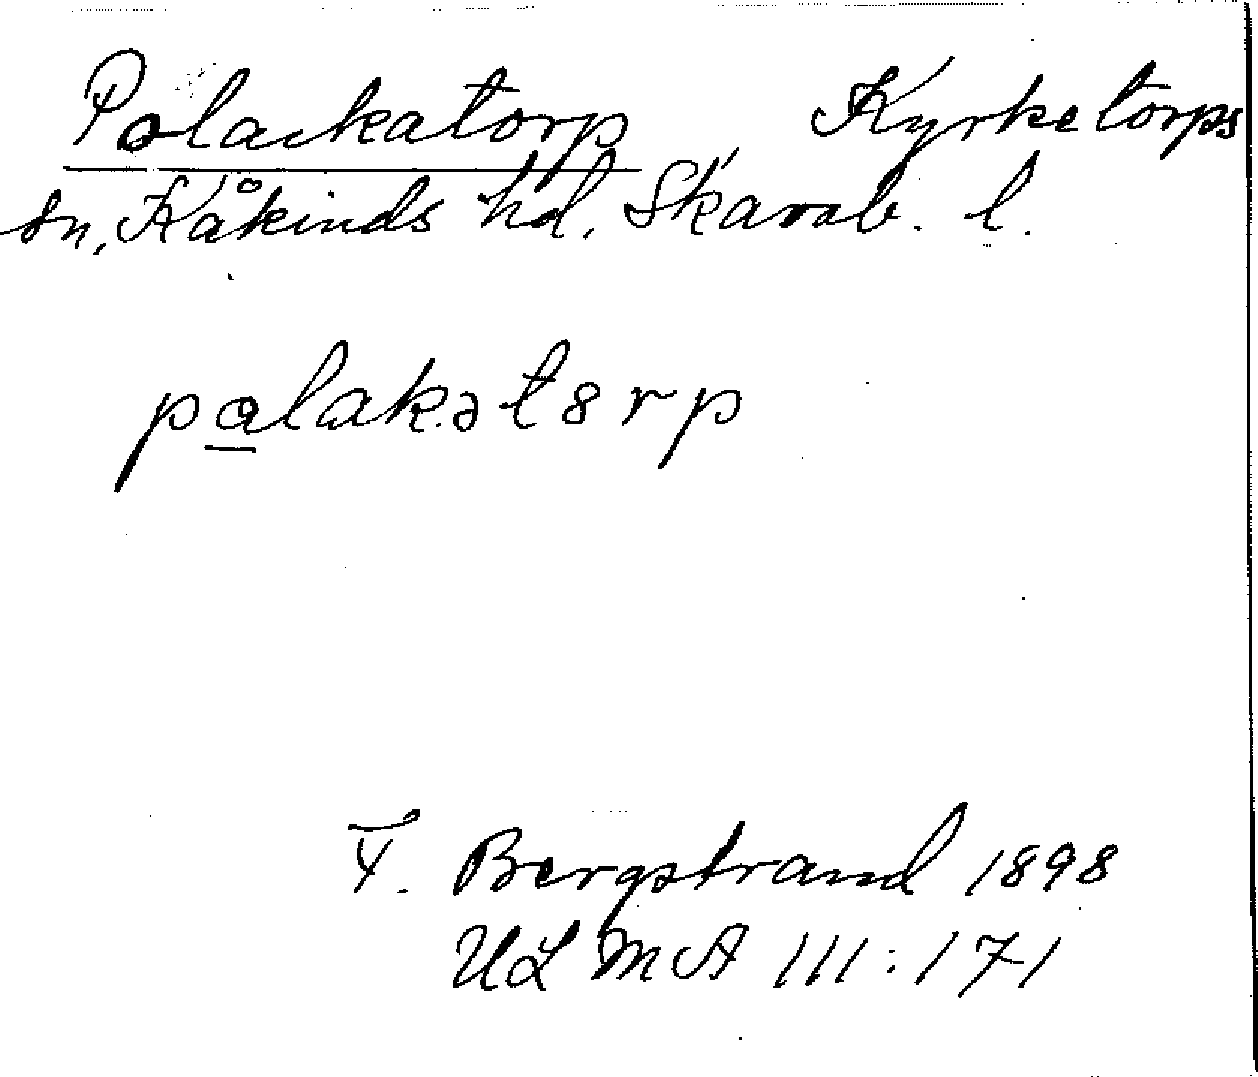 Polackatorp Kyrketorps
sn, Kåkinds hd. Skarab. l.
palakət8rp
F. Bergstrand 1898
ULMA 111:171